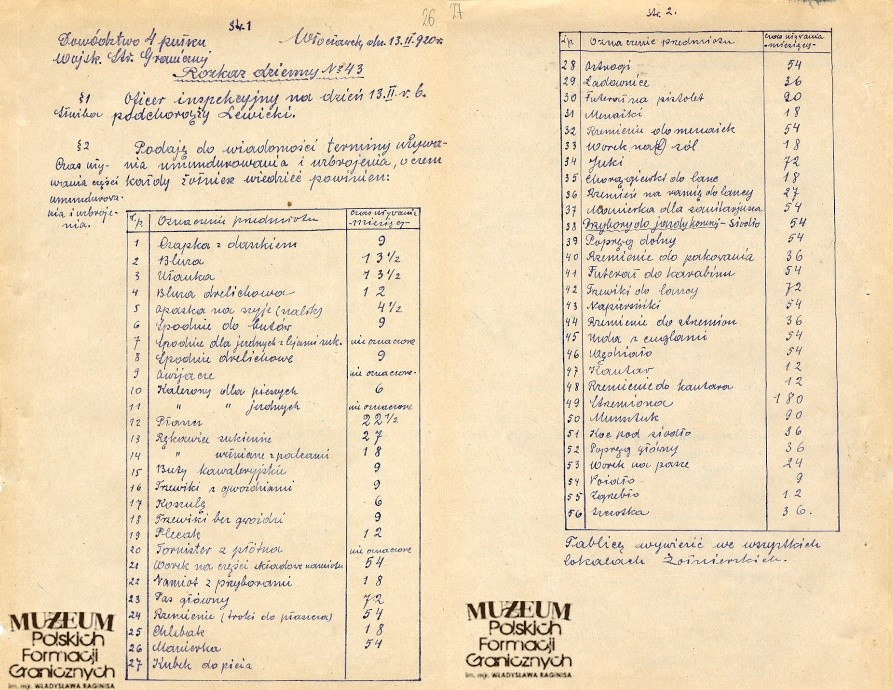 Str. 1
26
27
Dowództwo 4 pułku
Wojsk. Str. Granicznej
Włocławek, dn. 13.II.920r.
Rozkaz dzienny № 43
§ 1 Oficer inspekcyjny na dzień 13.II. r. b.
Służba podchorąży Lewicki.
§ 2 Podaję do wiadomości terminy używa-
Czas uży- nia umundurowania i uzbrojenia, o czem
wania części każdy żołnierz wiedzieć powinien:
umundurowa-
nia i uzbroje-
nia.
L.p. Oznaczenie przedmiotu Czas używania miesięcy
1 Czapka z daszkiem 9
2 Bluza 13 1/2
3 Ułanka 13 1/2
4 Bluza drelichowa 12
5 Opaska na szyję (halsk) 4 1/2
6 Spodnie do butów 9
7 Spodnie dla jezdnych z lejami suk. nie oznaczone
8 Spodnie drelichowe 9
9 Owijacze nie oznaczone
10 Kalesony dla pieszych 6
11 " " jezdnych nie oznaczone
12 Płaszcz 22 1/2
13 Rękawice sukienne 27
14 " wełniane z palcami 18
15 Buty kawaleryjskie 9
16 Trzewiki z gwoździami 9
17 Koszula 6
18 Trzewiki bez gwoździ 9
19 Plecak 12
20 Tornister z płótna nie oznaczone
21 Worek na części składowe namiotu 54
22 Namiot z przyborami 18
23 Pas główny 72
24 Rzemienie (troki do płaszcza) 54
25 Chlebak 18
26 Manierka 54
27 Kubek do picia
MUZEUM
Polskich
Formacji
Granicznych
im. mjr. WŁADYSŁAWA RAGINISA
Str. 2.
L.p. Oznaczenie przedmiotu Czas używania miesięcy
28 Ostrogi 54
29 Ładownice 36
30 Futerał na pistolet 90
31 Menażki 18
32 Rzemienie do menażek 54
33 Worek na sól 18
34 Juki 72
35 Chorągiewki do lanc 18
36 Rzemień na ramię do lancy 27
37 Manierka dla sanitarjusza 54
38 Przybory do jazdy konnej - Siodło 54
39 Popręg dolny 54
40 Rzemienie do pakowania 36
41 Futerał do karabinu 54
42 Trzewiki do lancy 72
43 Napierśniki 54
44 Rzemienie do strzemion 36
45 Uzda z cuglami 54
46 Wędzidło 54
47 Kantar 12
48 Rzemienie do kantara 12
49 Strzemiona 180
50 Munsztuk 90
51 Koc pod siodło 36
52 Popręg główny 36
53 Worek na paszę 24
54 Poidło 9
55 Zgrzebło 12
56 Szczotka 36.
Tablicę wywiesić we wszystkich
lokalach Żołnierskich.
MUZEUM
Polskich
Formacji
Granicznych
im. mjr. WŁADYSŁAWA RAGINISA